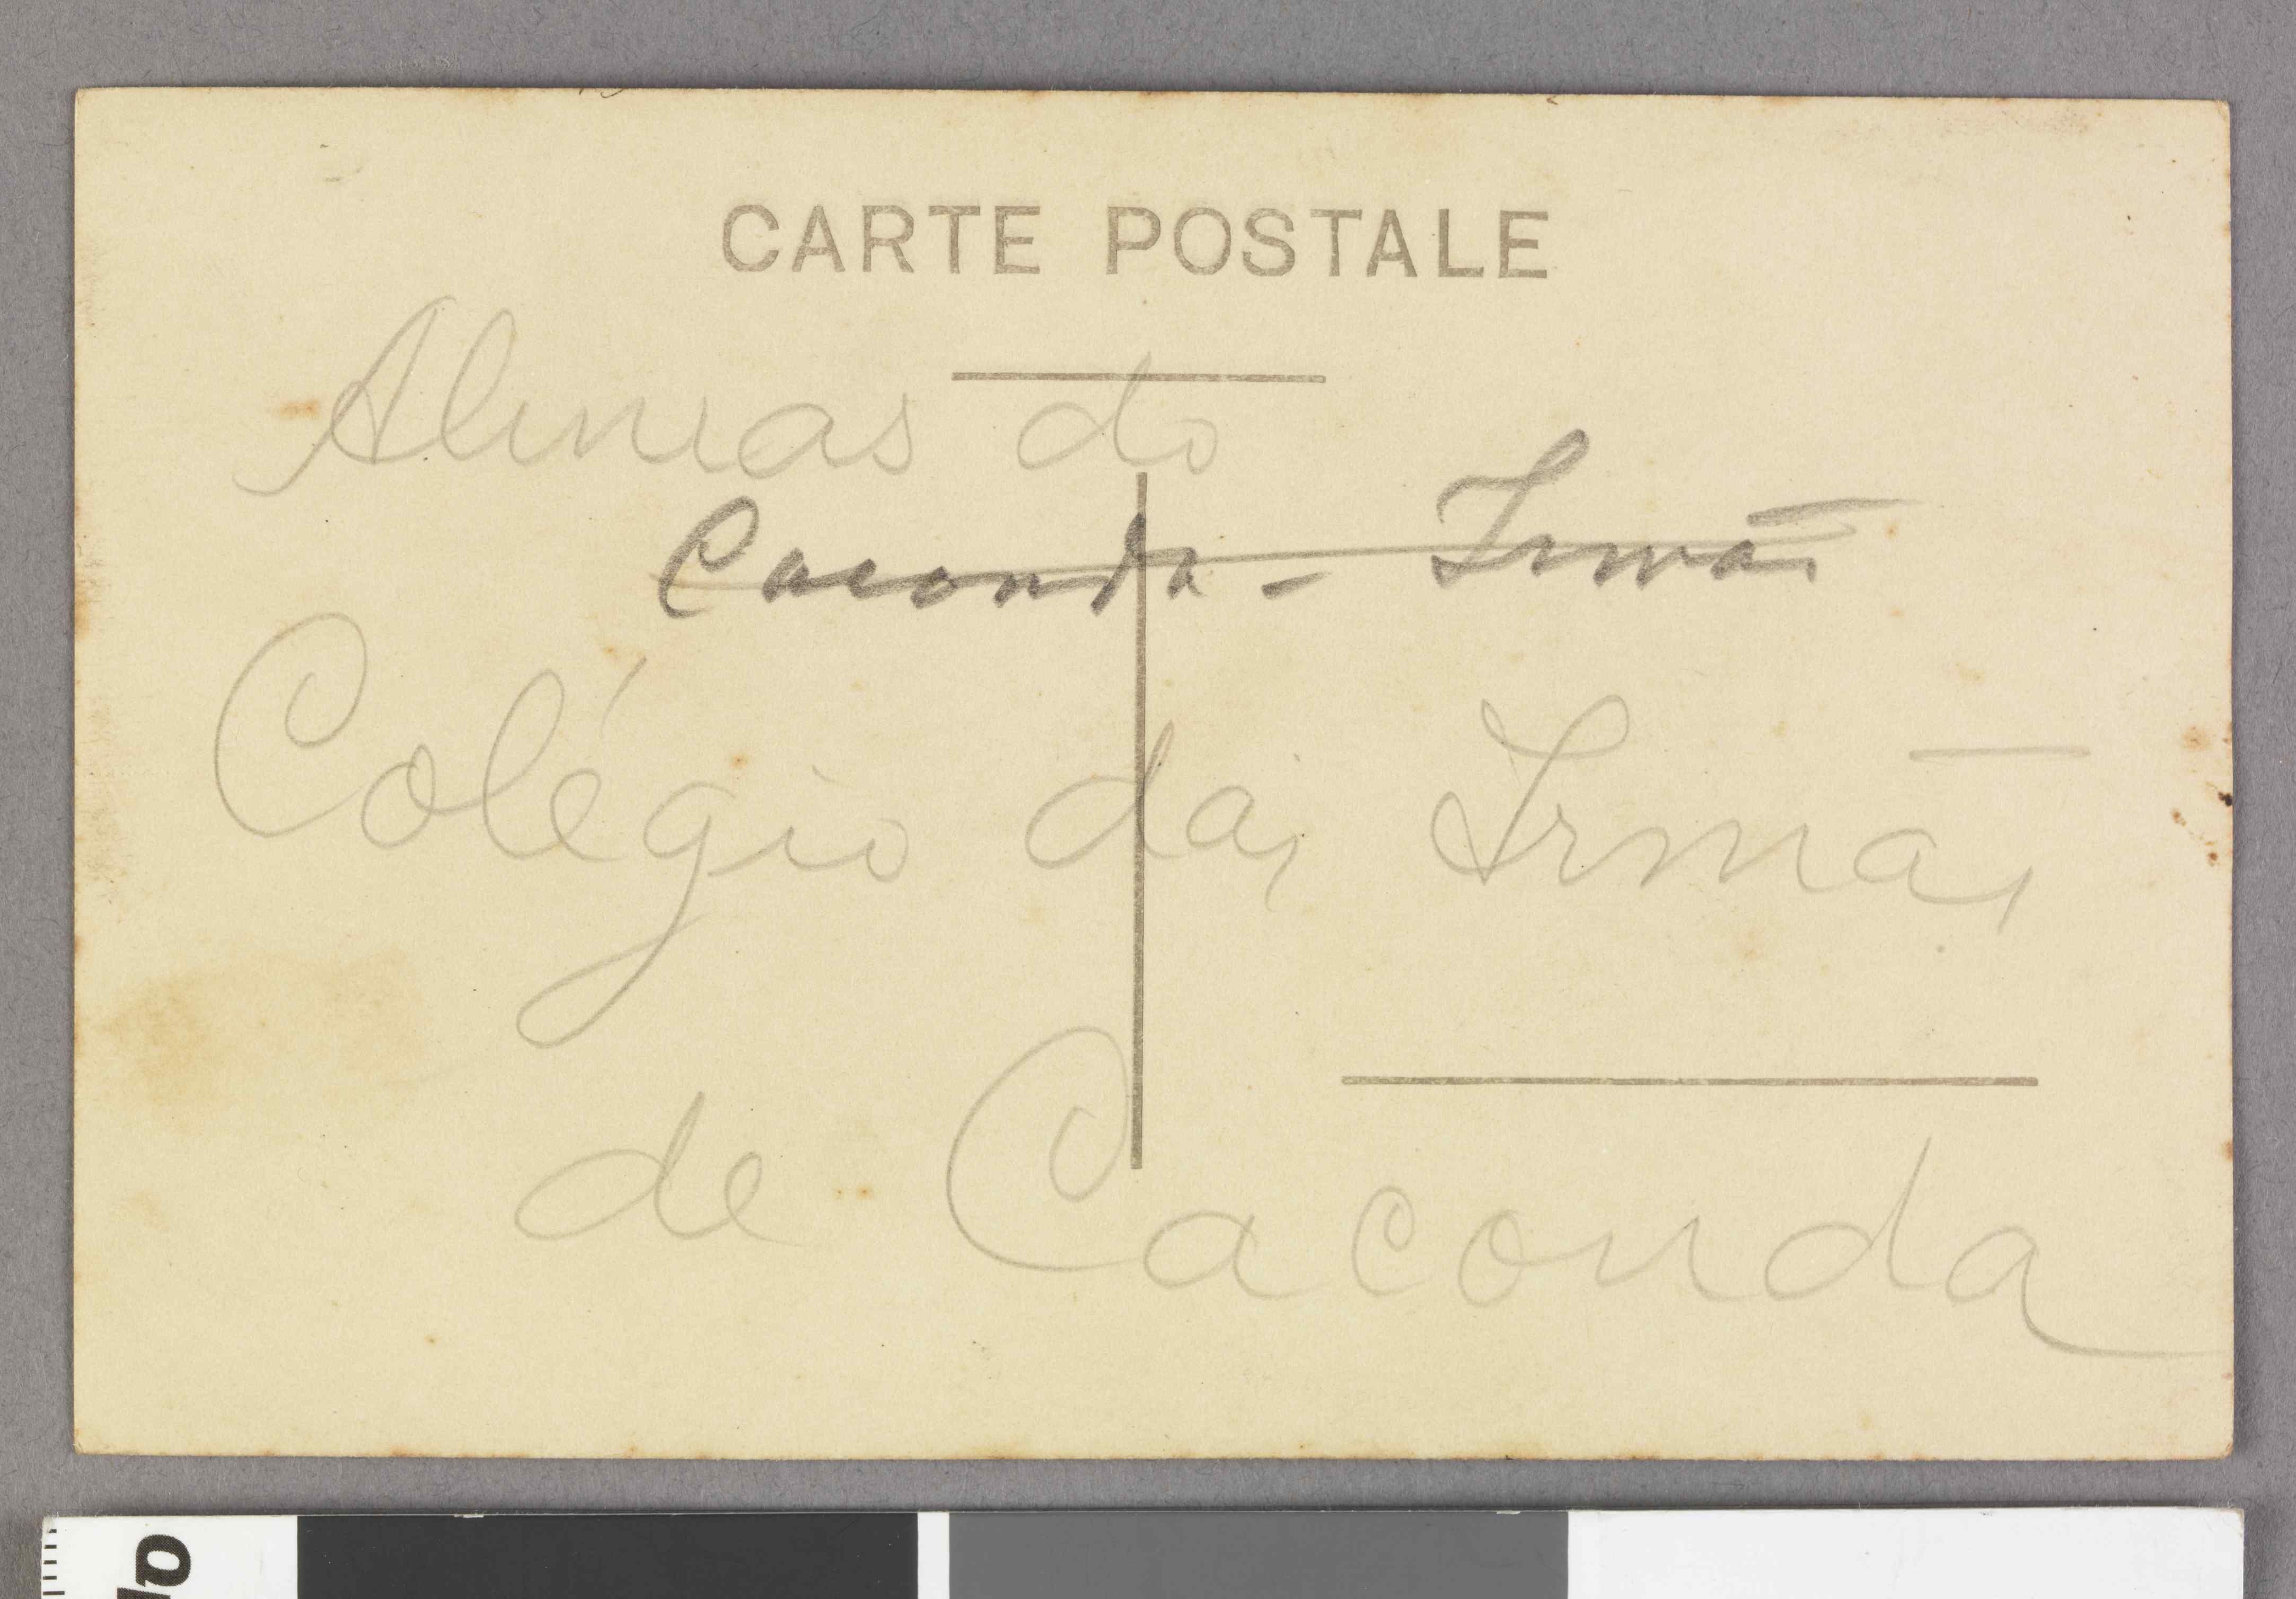 CARTE POSTALE
Alunas do
Caconda - Irmãs
Colégio das Irmãs
de Caconda